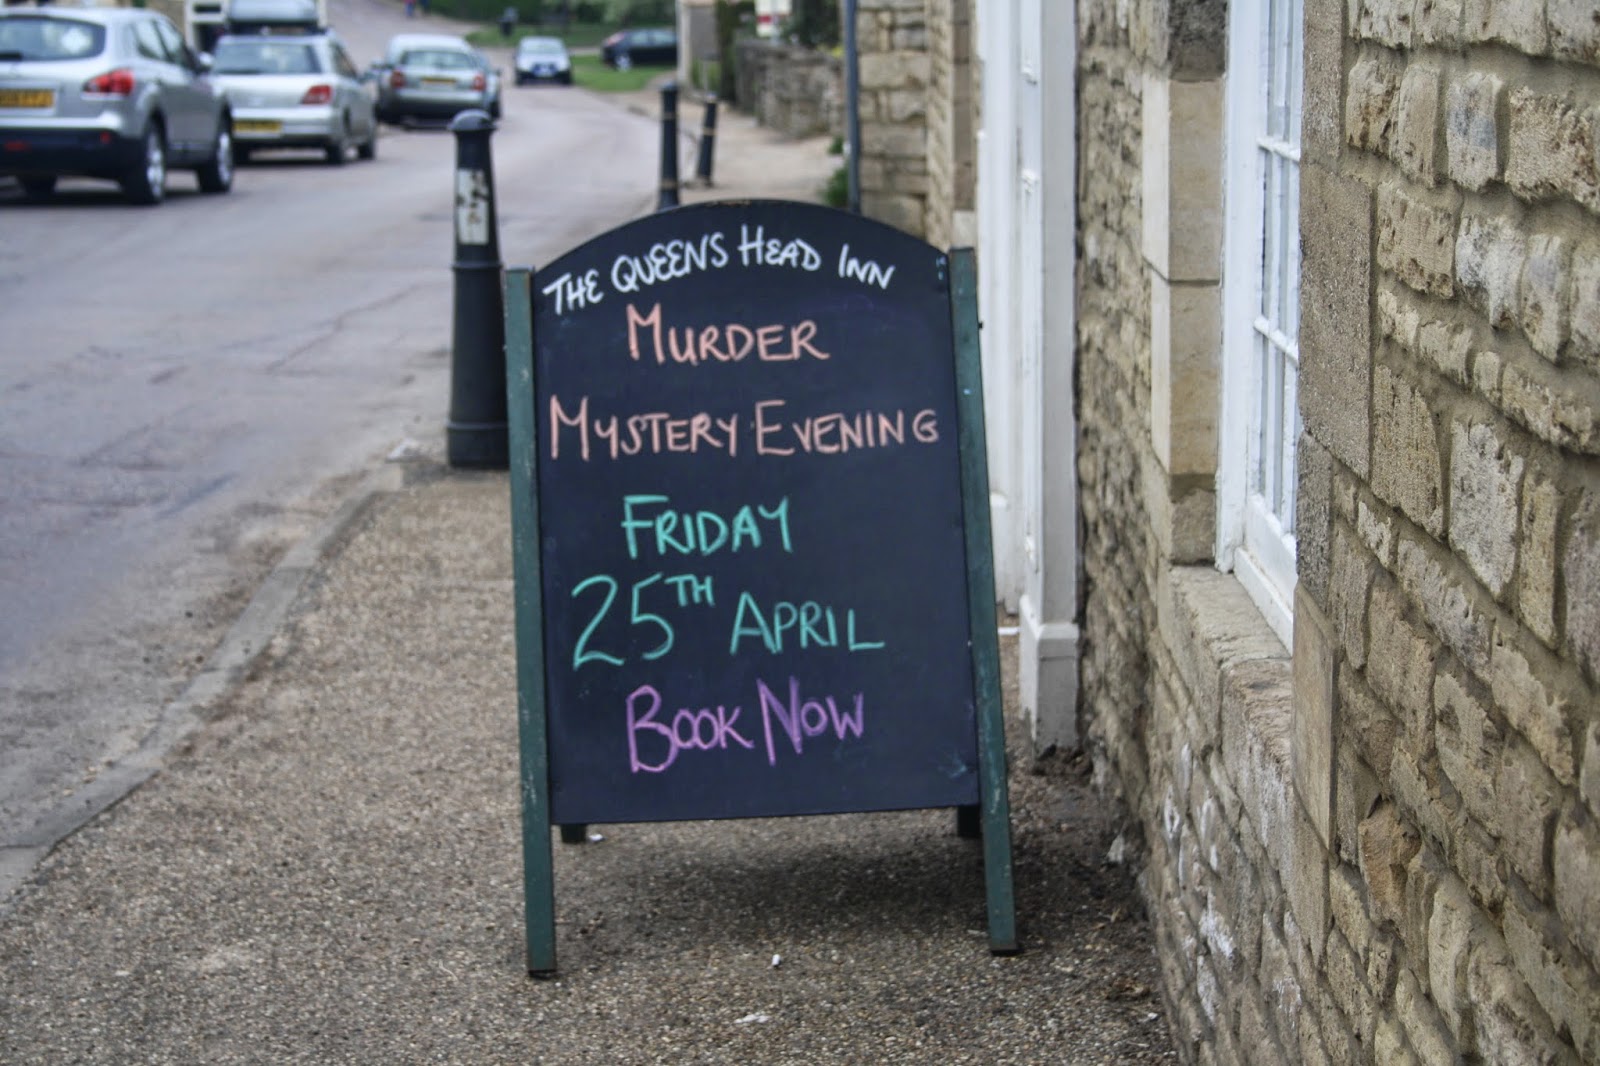 The Queens Head Inn
Murder
Mystery Evening
Friday
25th April
Book Now